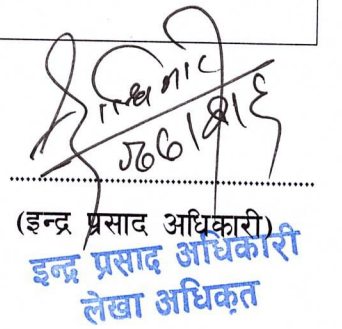 (इन्द्र प्रसाद अधिकारी)
इन्द्र प्रसाद अधिकारी
लेखा अधिकृत